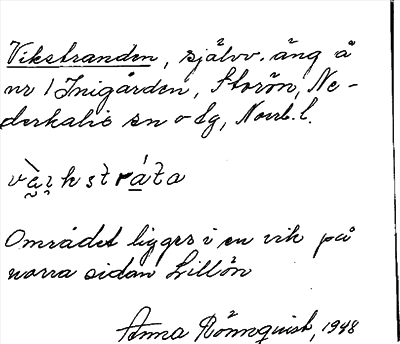 Vikstranden, självv. äng å
nr 1 Inigården, Storön, Ne-
derkalix sn o lg, Norrb. l.
Området ligger i en vik på
norra sidan Lillön
Anna Rönnquist, 1948